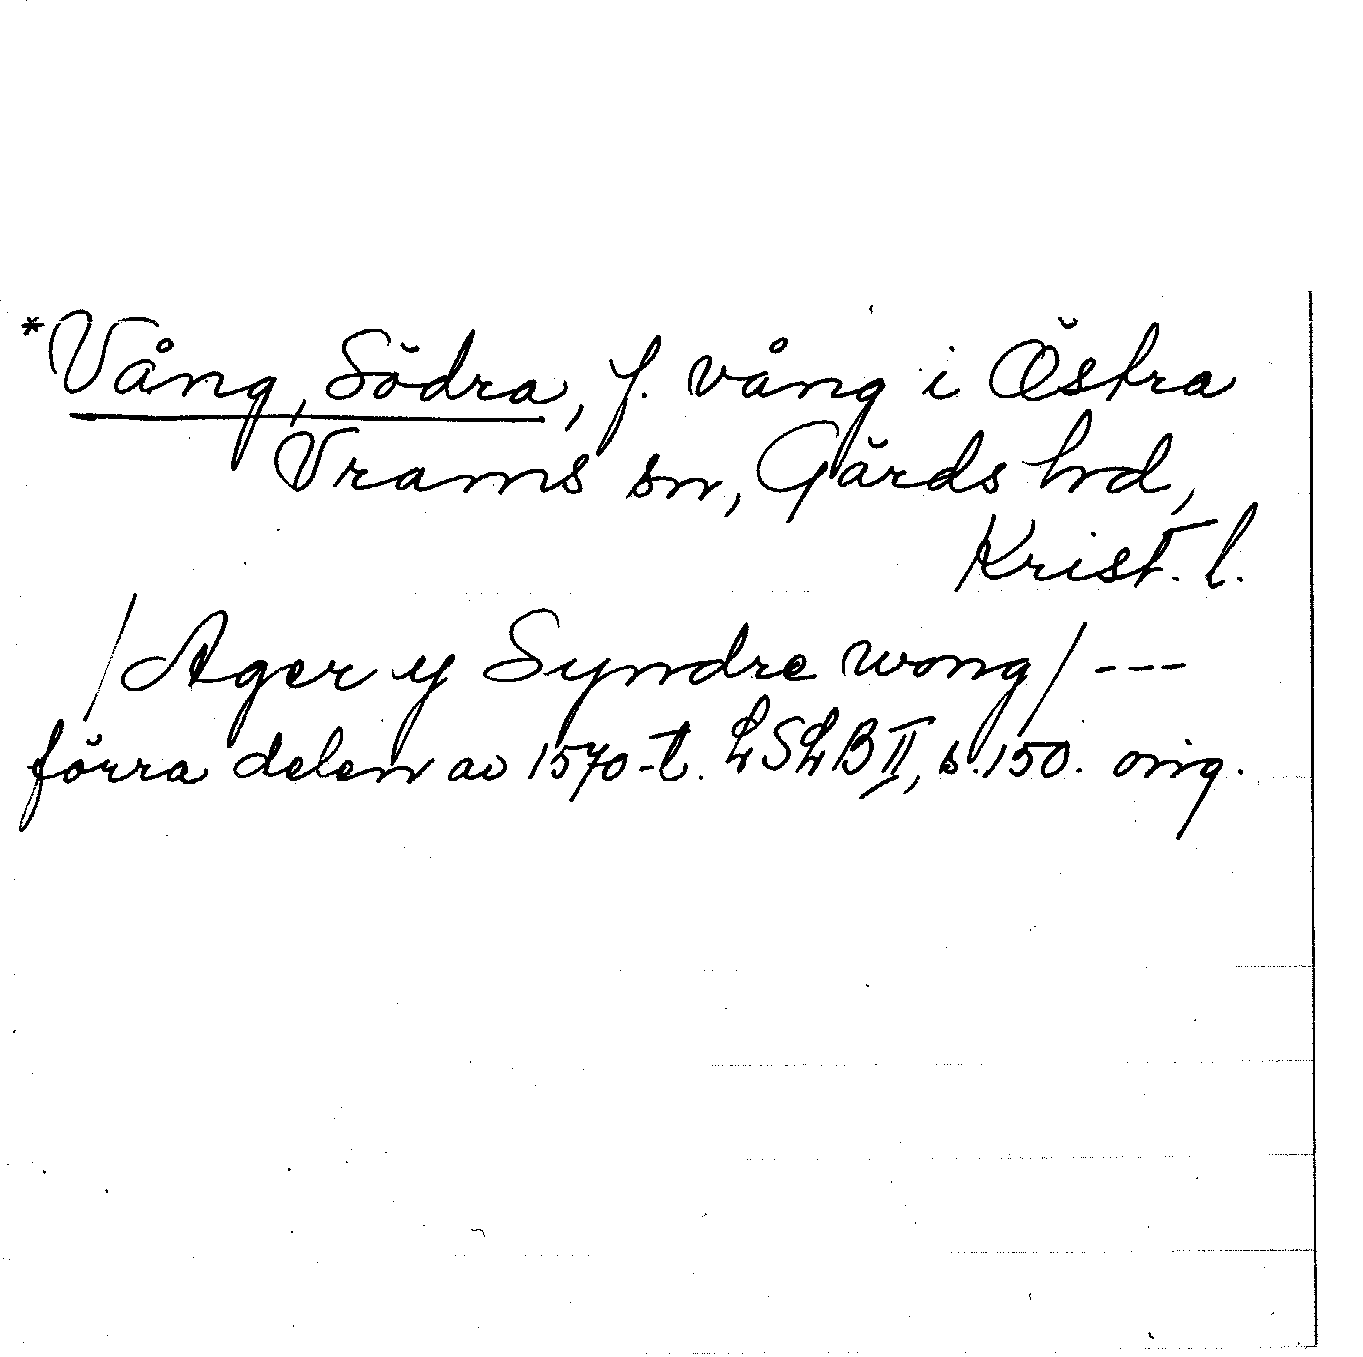 *Vång, Södra, f. vång i Östra
Vrams sn, Gärds hd,
Krist. l.
/Ager y Syndre wong/ ---
förra delen av 1570-t. LSLB II, s. 150. orig.